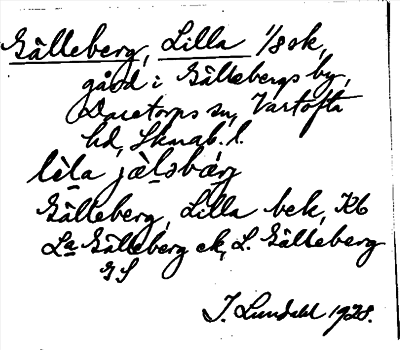 Gälleberg, Lilla 1/8 sk,
gård i Gällebergs by,
Daretorps sn, Vartofta
hd, Skarab. l.
lìla jàlsbærj
Gälleberg, Lilla bek, Kb
La Gälleberg ek, L. Gälleberg
GS
I. Lundahl 1928.